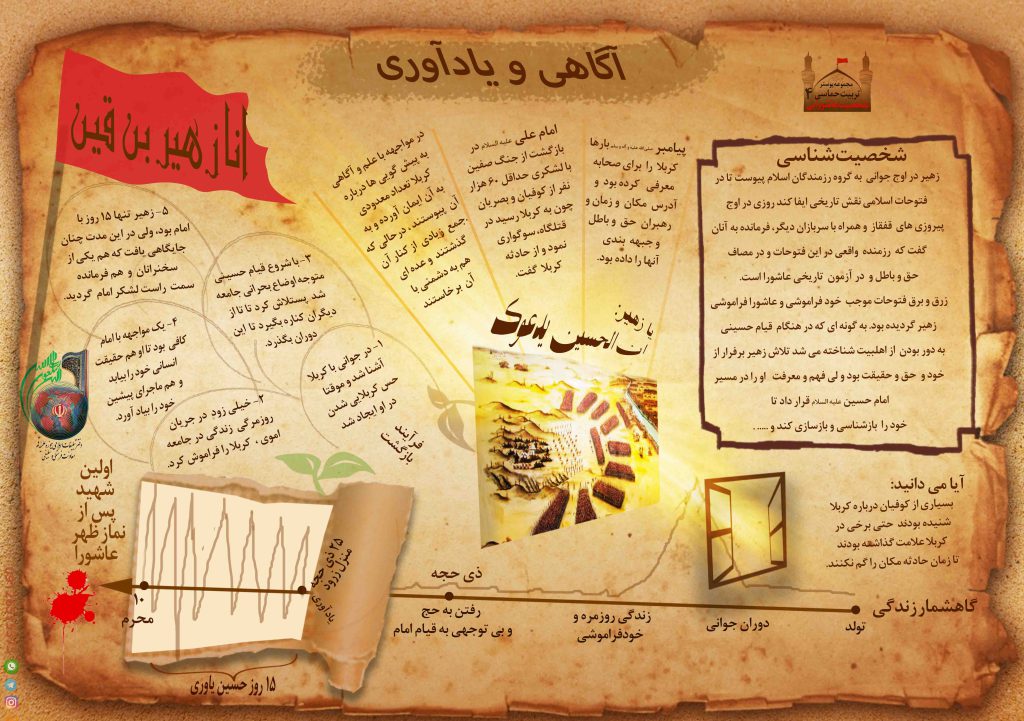 آگاهی و یادآوری
مجموعه پوستر
تربیت حماسی ۴
شخصیت‌شناسی
زهیر در اوج جوانی به گروه رزمندگان اسلام پیوست تا در
فتوحات اسلامی نقش تاریخی ایفا کند روزی در اوج
پیروزی های قفقاز و همراه با سربازان دیگر، فرمانده به آنان
گفت که رزمنده واقعی در این فتوحات و در مصاف
حق و باطل و در آزمون تاریخی عاشورا است.
زرق و برق فتوحات موجب خود فراموشی و عاشورا فراموشی
زهیر گردیده بود. به گونه ای که در هنگام قیام حسینی
به دور بودن از اهلبیت شناخته می شد تلاش زهیر برفرار از
خود و حق و حقیقت بود و لی فهم و معرفت او را در مسیر
امام حسین علیه السلام قرار داد تا
خود را بازشناسی و بازسازی کند و ......
پیامبر صلی الله علیه و آله و سلم بارها
کربلا را برای صحابه
معرفی کرده بود و
آدرس مکان و زمان و
رهبران حق و باطل
و جبهه بندی
آنها را داده بود.
امام علی علیه السلام در
بازگشت از جنگ صفین
با لشکری حداقل ۶۰ هزار
نفر از کوفیان و بصریان
چون به کربلا رسید در
قتلگاه، سوگواری
نمود و از حادثه
کربلا گفت.
در مواجهه با علم و آگاهی
به پیش گویی ها درباره
کربلا تعداد معدودی
به آن ایمان آورده و به
آن پیوستند ، درحالی که
جمع زیادی از کنار آن
گذشتند و عده ای
هم به دشمنی با
آن برخاستند
انا زهیر بن قین
۵- زهیر تنها ۱۵ روز با
امام بود، ولی در این مدت چنان
جایگاهی یافت که هم یکی از
سخنرانان و هم فرمانده
سمت راست لشکر امام گردید.
۳- با شروع قیام حسینی
متوجه اوضاع بحرانی جامعه
شد پستلاش کرد تا تا از
دیگران کناره بگیرد تا این
دوران بگذرد.
۴- یک مواجهه با امام
کافی بود تا او هم حقیقت
انسانی خود را بیابد
و هم ماجرای پیشین
خود را بیاد آورد.
۱- در جوانی با کربلا
آشنا شد و موقتا
حس کربلایی شدن
در او ایجاد شد
۲- خیلی زود در جریان
روزمرگی زندگی در جامعه
اموی ، کربلا را فراموش کرد.
فرآیند
بازگشت
یا زهیر:
ان الحسین یدعوک
آیا می دانید:
بسیاری از کوفیان درباره کربلا
شنیده بودند حتی برخی در
کربلا علامت گذاشته بودند
تا زمان حادثه مکان را گم نکنند.
گاهشمار زندگی
تولد
دوران جوانی
زندگی روزمره و
خودفراموشی
ذی حجه
رفتن به حج
و بی توجهی به قیام امام
۲۵ ذی حجه
منزل زرود
یادآوری
۱۰
محرم
۱۵ روز حسین یاوری
اولین
شهید
پس از
نماز ظهر
عاشورا